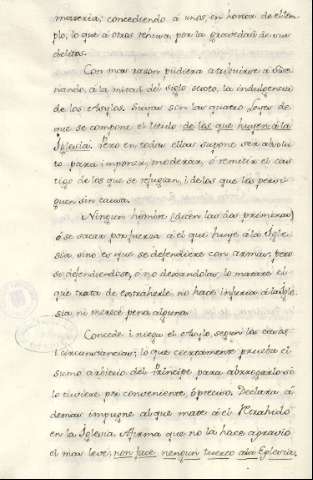 materia; concediendo á unos, en honor del tem-
plo, lo que á otros rehusa por la gravedad de sus
delitos.
Con mas razon pudiera atribuirse á
nando, á la mitad del siglo sexto, la indulgencia
de los Asylos. Suyas son las quatro Leyes de
que se compone el titulo de los que huyen á la
Iglesia. Pero en todas ellas supone ser absolu-
to para imponer, moderar, ó remitir el cas-
tigo de los que se refugian, i de los que los persi-
guen sin causa.
Ningun hombre (dicen las dos primeras)
ose sacar por fuerza á el que huye á la Igle-
sia sino es que se defendiere con armas; pero
se defendiendose, ó no dexandolas, lo matare el
que trata de extraherle, no hace injuria á la Igle-
sia, ni merece pena alguna.
Concede i niega el Asylo, segun las causas
i circunstancias; lo que ciertamente prueba el
sumo arbitrio del Principe para abrogarlo si
lo tuviere por conveniente, ó preciso. Declara á
demas impugne al que mate á el Retrahido
en la Iglesia. Afirma que no la hace agravio
el mas leve: non face nengun tuerto á la Eglesia.